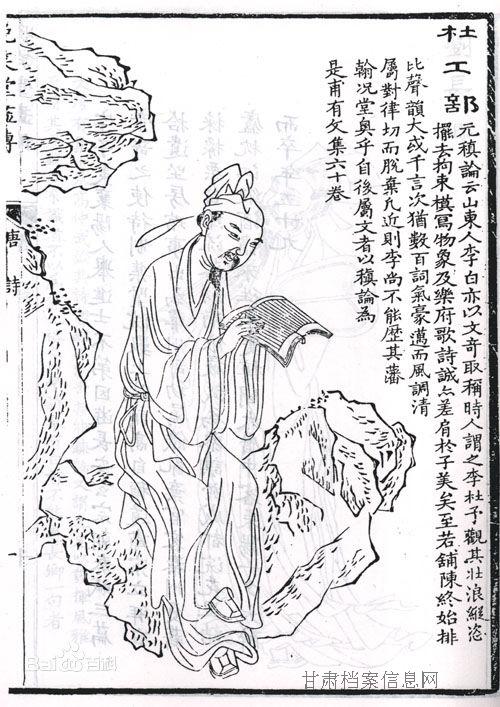 杜工部
元稹論云山東人李白亦以文奇取稱時人謂之李杜予觀其壯浪縱恣
擺去拘束模寫物象及樂府歌詩誠亦差肩於子美矣至若鋪陳終始排
比聲韻大或千言次猶數百詞氣豪邁而風調清
屬對律切而脫棄凡近則李尚不能歷其藩
翰況堂奧乎自後屬文者以稹論為
是甫有文集六十卷
笑堂畫傳
唐詩
一
Bai百科
甘肃档案信息网